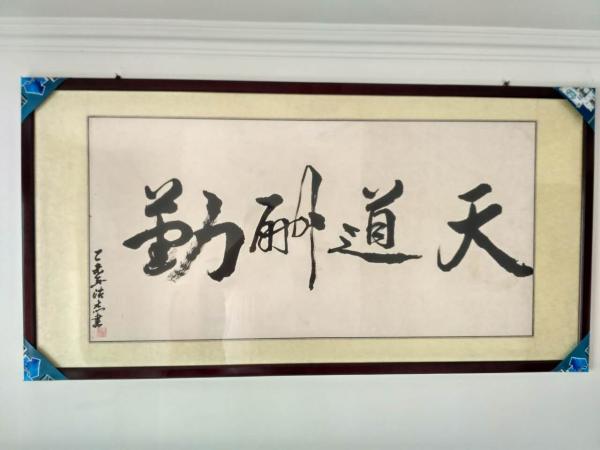 天道酬勤
乙 年 書